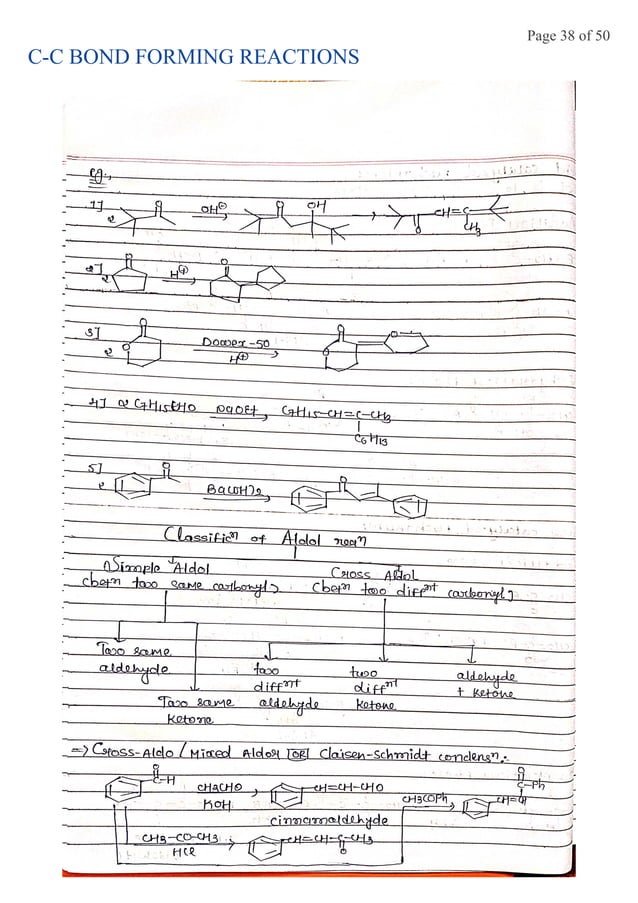 Page 38 of 50
C-C BOND FORMING REACTIONS
eg.,
1] 2 O OH⊖ O OH CH=C- O CH3
2] 2 O H⊕ O
3] 2 O O Dowex-50 H⊕ O O O
4] 2 C7H15CHO NaOEt, C7H15-CH=C-CH3
C6H13
5] 2 O Ba(OH)2 O
Classificn of Aldol reaqn
1) Simple Aldol
(betn two same carbonyl)
Cross Aldol
(betn two diffnt carbonyl)
Two same
aldehyde
Two same
Ketone
two
diffrnt
aldehyde
two
diffnt
Ketone
aldehyde
+ Ketone
=> Cross-Aldo / Mixed Aldol OR Claisen-Schmidt condensn :-
O
C-H CH3CHO KOH CH=CH-CHO
cinnamaldehyde
CH3COPh O C-Ph CH=CH
CH3-CO-CH3 HCl CH=CH-C-CH3
O